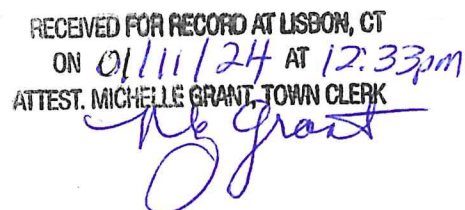 RECEIVED FOR RECORD AT LISBON, CT
ON 01/11/24 AT 12:33pm
ATTEST. MICHELLE GRANT, TOWN CLERK
Grant